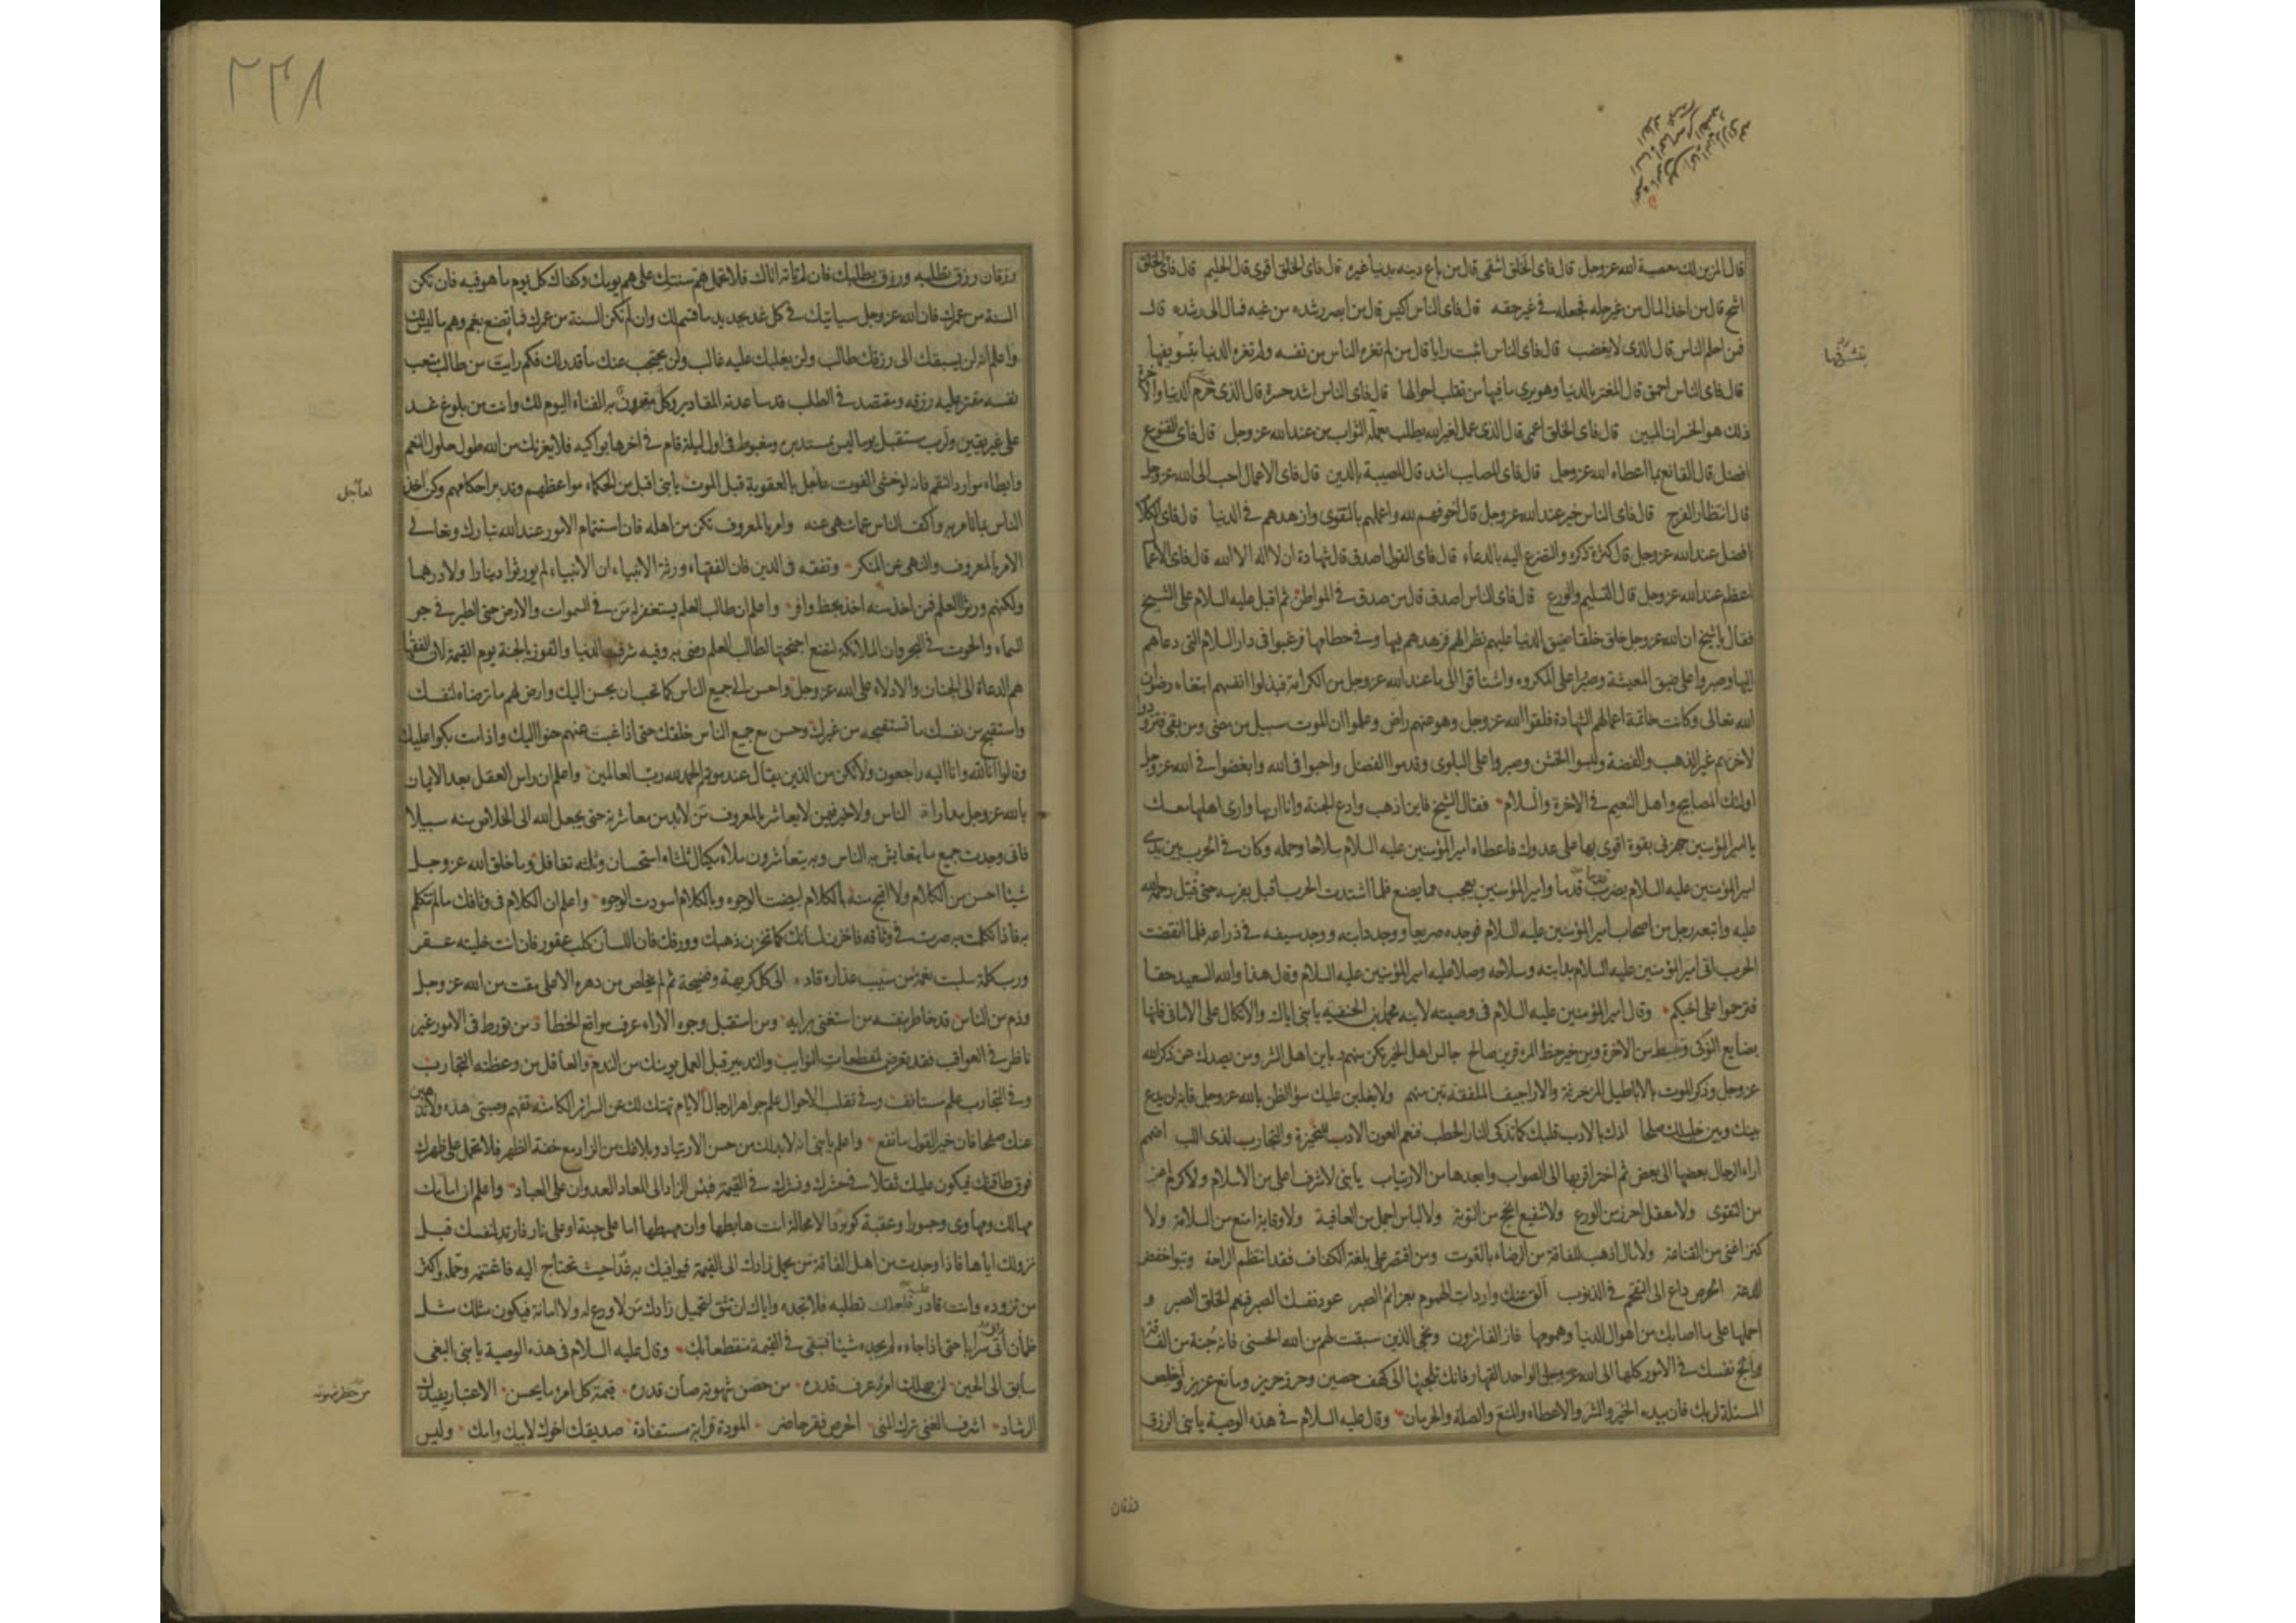 قال المزين لك معصية الله عز وجل قال فاى الخلق اشقى قال من باع دينه بدنيا غيره قال فاى الخلق اقوى قال الحليم قال فاى الخلق
اشح قال من اخذ المال من غير حله فجعله فى غير حقه قال فاى الناس اكيس قال من ابصر رشده من غيه فمال الى رشده قال
فمن احلم الناس قال الذى لا يغضب قال فاى الناس اثبت رايا قال من لم تغره الناس من نفسه ولم تغره الدنيا بتسويفها
قال فاى الناس احمق قال المغتر بالدنيا وهو يرى ما فيها من تقلب احوالها قال فاى الناس اشد حسرة قال الذى حرم الدنيا والاخرة
ذلك هو الخسران المبين قال فاى الخلق اعمى قال الذى عمل لغير الله يطلب بعمله الثواب من عند الله عز وجل قال فاى القنوع
افضل قال القانع بما اعطاه الله عز وجل قال فاى المصايب اشد قال المصيبة بالدين قال فاى الاعمال احب الى الله عز وجل
قال انتظار الفرج قال فاى الناس خير عند الله عز وجل قال اخوفهم لله واعملهم بالتقوى وازهدهم فى الدنيا قال فاى الكلام
افضل عند الله عز وجل قال كثرة ذكره والتضرع اليه بالدعاء قال فاى القول اصدق قال شهادة ان لا اله الا الله قال فاى الاعمال
اعظم عند الله عز وجل قال التسليم والورع قال فاى الناس اصدق قال من صدق فى المواطن ثم اقبل عليه السلام على الشيخ
فقال يا شيخ ان الله عز وجل خلق خلقا ضيق الدنيا عليهم نظرا لهم فزهدهم فيها وفى حطامها فرغبوا فى دار السلام التى دعاهم
اليها وصبروا على ضيق المعيشة وصبروا على المكروه واشتاقوا الى ما عند الله عز وجل من الكرامة فبذلوا انفسهم ابتغاء رضوان
الله تعالى وكانت خاتمة اعمالهم الشهادة فلقوا الله عز وجل وهو عنهم راض وعلموا ان الموت سبيل من مضى ومن بقى فتزودوا
لاخرتهم غير الذهب والفضة ولبسوا الخشن وصبروا على البلوى وقدموا الفضل واحبوا فى الله وابغضوا فى الله عز وجل
اولئك المصابيح واهل النعيم فى الاخرة والسلام فقال الشيخ فاين اذهب وادع الجنة وانا اريها وارى اهلها معك
يا امير المؤمنين جهزنى بقوة اقوى بها على عدوك فاعطاه امير المؤمنين عليه السلام سلاحا وحمله وكان فى الحرب بين يدى
امير المؤمنين عليه السلام يضرب قدما وامير المؤمنين يعجب مما يصنع فلما اشتدت الحرب اقبل بفرسه حتى قتل رحمة الله
عليه واتبعه رجل من اصحاب امير المؤمنين عليه السلام فوجده صريعا ووجد دابته ووجد سيفه فى ذراعه فلما انقضت
الحرب اتى امير المؤمنين عليه السلام بدابته وسلاحه وصلا عليه امير المؤمنين عليه السلام وقال هذا والله السعيد حقا
فترحموا على اخيكم وقال امير المؤمنين عليه السلام فى وصيته لابنه محمد بن الحنفيه يا بنى اياك والاتكال على الامانى فانها
بضايع النوكى وتثبيط من الاخرة ومن خير حظ المرء قرين صالح جالس اهل الخير تكن منهم باين اهل الشر ومن يصدك عن ذكر الله
عز وجل وذكر الموت بالاباطيل المزخرفة والاراجيف الملفقه تبن منهم ولا يغلبن عليك سوء الظن بالله عز وجل فانه لن يدع
بينك وبين خليلك صلحا اذك بالادب قلبك كما تذكى النار الحطب فنعم العون الادب للنحيزة والتجارب لذى اللب اضمم
اراء الرجال بعضها الى بعض ثم اختر اقربها الى الصواب وابعدها من الارتياب يا بنى لا شرف اعلى من الاسلام ولا كرم اعز
من التقوى ولا معقل احرز من الورع ولا شفيع انجح من التوبة ولا لباس اجمل من العافية ولا وقاية امنع من السلامة ولا
كنز اغنى من القناعة ولا مال اذهب للفاقة من الرضاء بالقوت ومن اقتصر على بلغة الكفاف فقد انتظم الراحة وتبوا خفض
الدعة الحرص داع الى التقحم فى الذنوب الق عنك واردات الهموم بعزائم الصبر عود نفسك الصبر فنعم الخلق الصبر و
احملها على ما اصابك من اهوال الدنيا وهمومها فاز الفائزون ونجى الذين سبقت لهم من الله الحسنى فانه جنة من الفاقة
والجئ نفسك فى الامور كلها الى الله عز وجل الواحد القهار فانك تلجئها الى كهف حصين وحرز حريز ومانع عزيز واخلص
المسئلة لربك فان بيده الخير والشر والاعطاء والمنع والصلة والحرمان وقال عليه السلام فى هذه الوصية يا بنى الرزق
رزقان
رزقان رزق تطلبه ورزق يطلبك فان لم تاته اتاك فلا تحمل هم سنتك على هم يومك وكفاك كل يوم ما هو فيه فان تكن
السنة من عمرك فان الله عز وجل سياتيك فى كل غد بجديد ما قسم لك وان لم تكن السنة من عمرك فما تصنع بغم وهم ما ليس لك
واعلم انه لن يسبقك الى رزقك طالب ولن يغلبك عليه غالب ولن يحتجب عنك ما قدر لك فكم رايت من طالب متعب
نفسه مقتر عليه رزقه ومقتصد فى الطلب قد ساعدته المقادير وكل مقرون به الفناء اليوم لك وانت من بلوغ غد
على غير يقين ولرب مستقبل يوما ليس بمستدبره ومغبوط فى اول ليلة قام فى اخرها بواكيه فلا يغرنك من الله طول حلول النعم
وابطاء موارد النقم فانه لو خشى الفوت عاجل بالعقوبة قبل الموت يا بنى اقبل من الحكماء مواعظهم وتدبر احكامهم وكن اخذ
الناس بما تامر به واكف الناس عما تنهى عنه وامر بالمعروف تكن من اهله فان استتمام الامور عند الله تبارك وتعالى
الامر بالمعروف والنهى عن المنكر وتفقه فى الدين فان الفقهاء ورثة الانبياء ان الانبياء لم يورثوا دينارا ولا درهما
ولكنهم ورثوا العلم فمن اخذ منه اخذ بحظ وافر واعلم ان طالب العلم يستغفر له من فى السموات والارض حتى الطير فى جو
السماء والحوت فى البحر وان الملائكة لتضع اجنحتها لطالب العلم رضى به وفيه شرف الدنيا والفوز بالجنة يوم القيمة لان الفقهاء
هم الدعاة الى الجنان والادلاء على الله عز وجل واحسن الى جميع الناس كما تحب ان يحسن اليك وارض لهم ما ترضاه لنفسك
واستقبح من نفسك ما تستقبحه من غيرك وحسن مع جميع الناس خلقك حتى اذا غبت عنهم حنوا اليك واذا مت بكوا عليك
وقالوا انا لله وانا اليه راجعون ولا تكن من الذين يقال عند موته الحمد لله رب العالمين واعلم ان راس العقل بعد الايمان
بالله عز وجل مداراة الناس ولا خير فيمن لا يعاشر بالمعروف من لا بد من معاشرته حتى يجعل الله الى الخلاص منه سبيلا
فانى وجدت جميع ما يتعايش به الناس وبه يتعاشرون ملاء مكيال ثلثاه استحسان وثلثه تغافل وما خلق الله عز وجل
شيئا احسن من الكلام ولا اقبح منه بالكلام ابيضت الوجوه وبالكلام اسودت الوجوه واعلم ان الكلام فى وثاقك ما لم تتكلم
به فاذا تكلمت به صرت فى وثاقه فاخزن لسانك كما تخزن ذهبك وورقك فان اللسان كلب عقور فان انت خليته عقر
ورب كلمة سلبت نعمة من سيب عذاره قاده الى كل كريهة وفضيحة ثم لم يخلص من دهره الا على مقت من الله عز وجل
وذم من الناس قد خاطر بنفسه من استغنى برايه ومن استقبل وجوه الاراء عرف مواقع الخطا من تورط فى الامور غير
ناظر فى العواقب فقد تعرض لمفظعات النوايب والتدبير قبل العمل يومنك من الندم والعاقل من وعظته التجارب
وفى التجارب علم مستانف وفى تقلب الاحوال علم جواهر الرجال الايام تهتك لك عن السرائر الكامنة تفهم وصيتى هذه ولا تذهبن
عنك صفحا فان خير القول ما نفع واعلم يا بنى انه لا بد لك من حسن الارتياد وبلاغك من الزاد مع خفة الظهر فلا تحمل على ظهرك
فوق طاقتك فيكون عليك ثقلا فى حشرك ونشرك فى القيمة فبئس الزاد الى المعاد العدوان على العباد واعلم ان امامك
مهالك ومهاوى وجسورا وعقبة كؤودا لا محالة انت هابطها وان مهبطها اما على جنة او على نار فارتد لنفسك قبل
نزولك اياها فاذا وجدت من اهل الفاقة من يحمل زادك الى القيمة فيوافيك به غدا حيث تحتاج اليه فاغتنمه وحمله واكثر
من تزوده وانت قادر عليه فلعلك تطلبه فلا تجده واياك ان تثق لتحميل زادك من لا ورع له ولا امانة فيكون مثلك مثل
ظمأن راى سرابا حتى اذا جاءه لم يجده شيئا فتبقى فى القيمة منقطعا بك وقال عليه السلام فى هذه الوصية يا بنى البغى
سابق الى الحين لن يهلك امرؤ عرف قدره من حصن شهوته صان قدره قيمة كل امرء ما يحسن الاعتبار يفيدك
الرشاد اشرف الغنى ترك المنى الحرص فقر حاضر المودة قرابة مستفادة صديقك اخوك لابيك وامك وليس